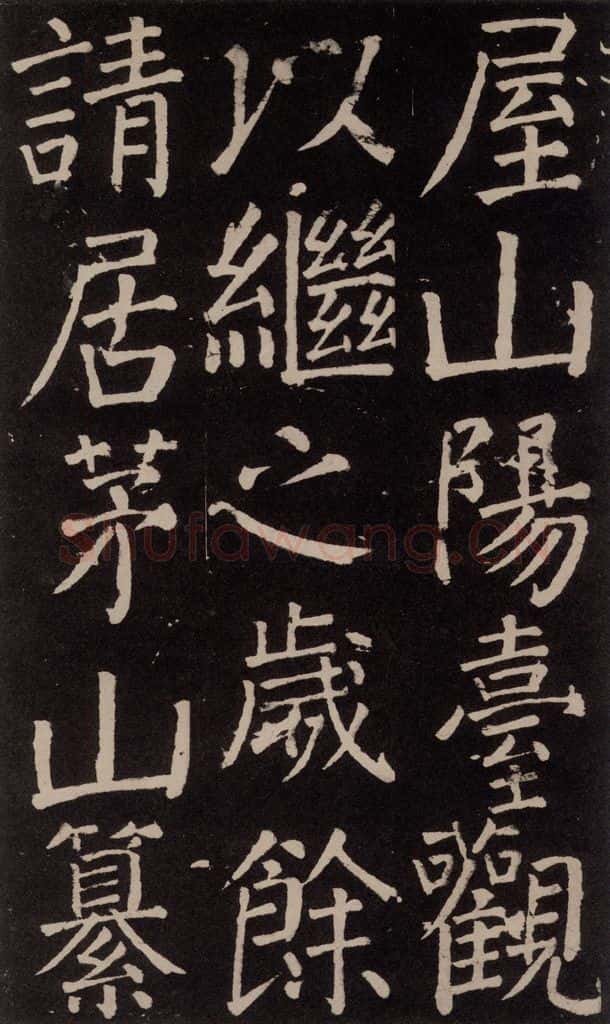 屋山陽臺觀
以繼之歲餘
請居茅山纂
Shufawang.CN